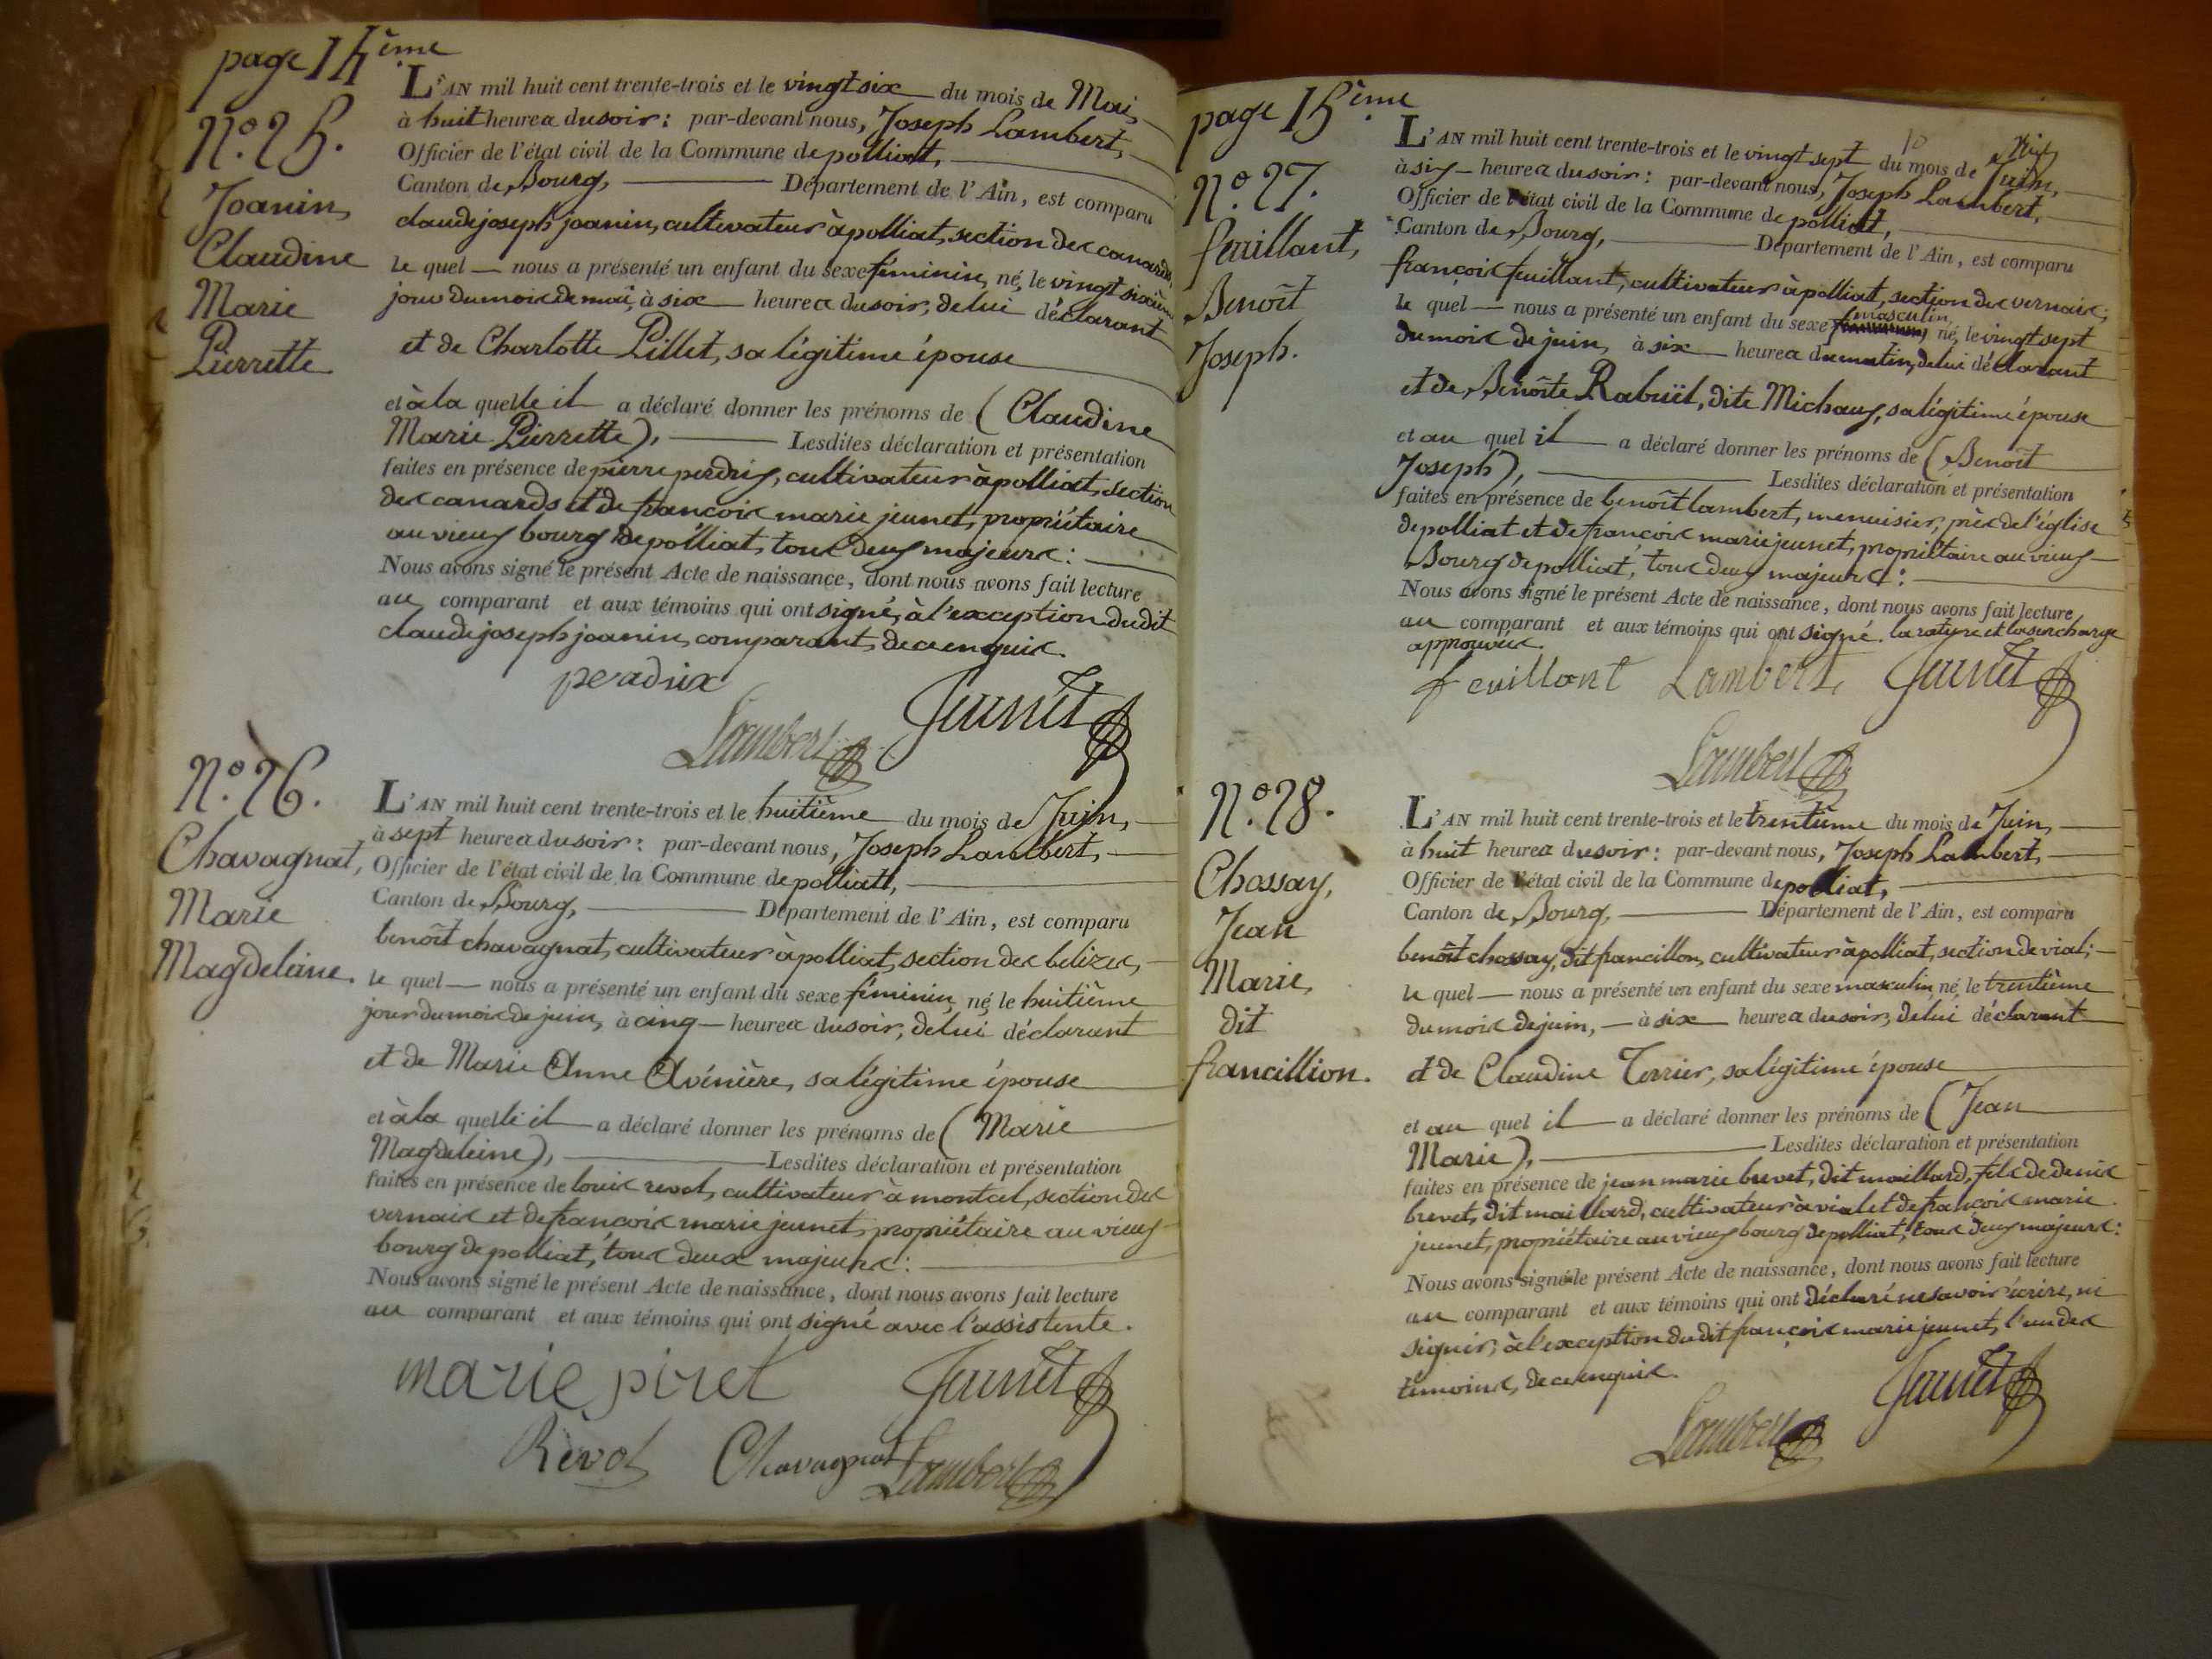 page 14ème
N.° 25.
Joanin,
Claudine
Marie
Pierrette
L'AN mil huit cent trente-trois et le vingt six du mois de Mai,
à huit heures du soir : par-devant nous, Joseph Lambert,
Officier de l'état civil de la Commune de polliat,
Canton de Bourg, Département de l'Ain, est comparu
claude joseph joanin, cultivateur à polliat, section des canards,
le quel nous a présenté un enfant du sexe féminin, né, le vingt sixième
jour du mois de mai, à six heures du soir, de lui déclarant
et de Charlotte Pillet, sa légitime épouse
et à la quelle il a déclaré donner les prénoms de (Claudine
Marie Pierrette), Lesdites déclaration et présentation
faites en présence de pierre perdrix, cultivateur à polliat, section
des canards et de francois marie jeunet, propriétaire
au vieux bourg de polliat, tous deux majeurs :
Nous avons signé le présent Acte de naissance, dont nous avons fait lecture
au comparant et aux témoins qui ont signé, à l'exception du dit
claude joseph joanin, comparant, de ce enquis.
peadrix
Lambert
Jeunet
N.° 26.
Chavagnat,
Marie
Magdeleine.
L'AN mil huit cent trente-trois et le huitième du mois de Juin,
à sept heures du soir : par-devant nous, Joseph Lambert,
Officier de l'état civil de la Commune de polliatt,
Canton de Bourg, Département de l'Ain, est comparu
benoît chavagnat, cultivateur à polliat, section des belizes,
le quel nous a présenté un enfant du sexe féminin, né, le huitième
jour du mois de juin, à cinq heures du soir, de lui déclarant
et de Marie Anne Avinière, sa légitime épouse
et à la quelle il a déclaré donner les prénoms de (Marie
Magdeleine), Lesdites déclaration et présentation
faites en présence de louis revol, cultivateur à montcel, section des
vernais et de françois marie jeunet, propriétaire au vieux
bourg de polliat, tous deux majeurs :
Nous avons signé le présent Acte de naissance, dont nous avons fait lecture
au comparant et aux témoins qui ont signé avec l'assistente.
marie piret
Jeunet
Révol Chavagnat Lambert
page 15ème
N.° 27.
feuillant,
Benoît
Joseph.
L'AN mil huit cent trente-trois et le vingt sept du mois de Juin,
à six heures du soir : par-devant nous, Joseph Lambert,
Officier de l'état civil de la Commune de polliat,
Canton de Bourg, Département de l'Ain, est comparu
françois feuillant, cultivateur à polliat, section des vernais,
le quel nous a présenté un enfant du sexe masculin, né, le vingt sept
du mois de juin, à six heures du matin, de lui déclarant
et de Benoîte Rabuël, dite Michaux, sa légitime épouse
et au quel il a déclaré donner les prénoms de (Benoît
Joseph), Lesdites déclaration et présentation
faites en présence de benoît lambert, menuisier, près de l'église
de polliat et de françois marie jeunet, propriétaire au vieux
Bourg de polliat, tous deux majeurs :
Nous avons signé le présent Acte de naissance, dont nous avons fait lecture
au comparant et aux témoins qui ont signé. la rature et la surcharge
approuvées.
feuillant Lambert Jeunet
Lambert
N.° 28.
Chossay,
Jean
Marie,
dit
francillion.
L'AN mil huit cent trente-trois et le trentième du mois de Juin,
à huit heures du soir : par-devant nous, Joseph Lambert,
Officier de l'état civil de la Commune de polliat,
Canton de Bourg, Département de l'Ain, est comparu
benoît chossay, dit francillon, cultivateur à polliat, section de vial ;
le quel nous a présenté un enfant du sexe masculin, né, le trentième
du mois de juin, à six heures du soir, de lui déclarant
et de Claudine Terrier, sa légitime épouse
et au quel il a déclaré donner les prénoms de (Jean
Marie), Lesdites déclaration et présentation
faites en présence de jean marie brevet, dit maillard, fils de denis
brevet, dit maillard, cultivateur à vial et de françois marie
jeunet, propriétaire au vieux bourg de polliat, tous deux majeurs :
Nous avons signé le présent Acte de naissance, dont nous avons fait lecture
au comparant et aux témoins qui ont déclaré ne savoir écrire, ni
signer, à l'exception du dit françois marie jeunet, l'un des
témoins, de ce enquis.
Jeunet
Lambert